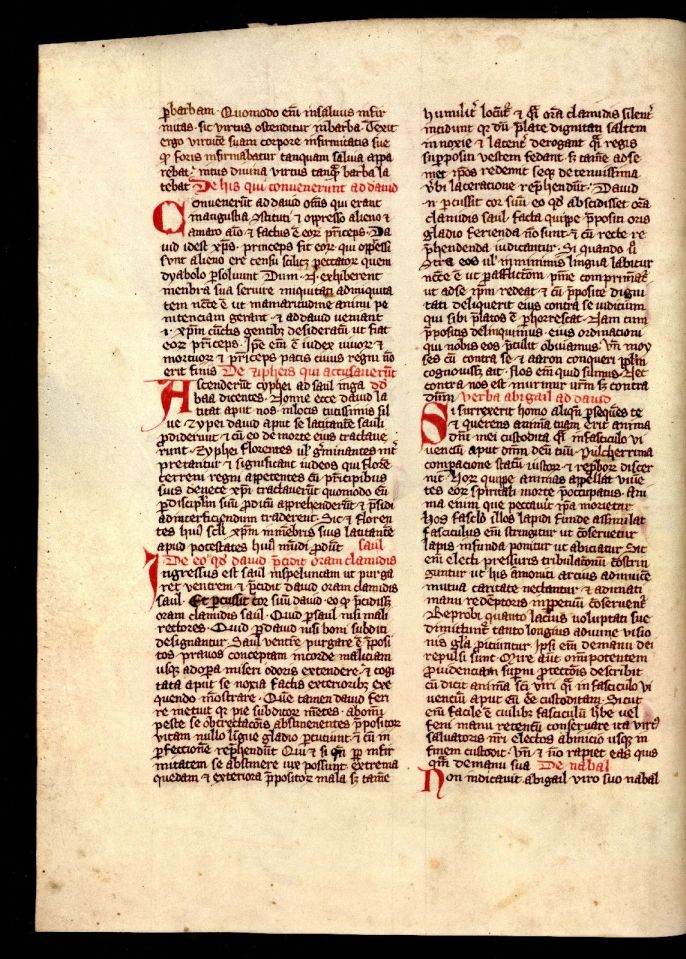 barbam. Quomodo em̄ in saliuis infir
mitas. sic virtus ostenditur in barba. Texit
ergo virtutē suam corpore infirmitatis sue
⁊ foris infirmabatur tanquam saliua appa
rebat. intus diuina virtus tanq̄ barba la
tebat De his qui convenerunt ad dauid
Convenerūt ad dauid om̄s qui erant
in angustia ⁊stituti ⁊ oppresso alieno ⁊
amaro aīo ⁊ factus ē eoꝝ p̄nceps. Da
uid idest xp̄s. princeps fit eoꝝ qui opp̄ssi
sunt alieno ere censu scilicet peccatoꝝ quem
dyabolo ꝑsoluunt Dum exhiberent
menbra sua seruire iniquitati ad iniquita
tem necē ē ut in amaritudine animi pe
nitenciam gerant. ⁊ ad dauid veniant
.i. xp̄m cūctis gentibꝫ desideratū ut fiat
eoꝝ p̄nceps. Ip̄e em̄ ē iudex viuoꝝ ⁊
mortuoꝝ ⁊ princeps pacis cuius regni nō
erit finis De zipheis qui accusauerūt
Ascenderūt cyphei ad saul in ga dd̄
baa dicentes. Nonne ecce dauid la
titat aput nos in locis tutissimis sil
ue ⁊ zypei dauid aput se latitantē sauli
ꝓdiderunt ⁊ cū eo de morte eius tractaue
runt. Zyphei florentes uł gminantes int̄
pretantur ⁊ significant iudeos qui flore
terreni regni appetentes cū p̄ncipibus
suis de nece xp̄i tractauerūt quomodo eū
ꝑ discipłm suū ꝓditū app̄henderūt ⁊ p̄sidi
ad interficiendum traderent. Sic ⁊ floren
tes hui᷒ sclī xp̄m in mēbris suis latitantē
apud potestates hui᷒ mūdi ꝓdūt saul
De eo qđ dauid p̄cidit oram clamidis
Ingressus est saul in speluncam ut purga
ret ventrem ⁊ p̄cidit dauid oram clamidis
saul. Et ꝑcussit cor suū dauid. eo ꝙ p̄cidisset
oram clamidis saul. Quid ꝑ saul nisi mali
rectores. Quid ꝑ dauid nisi boni subditi
designantur. Saul ventrē purgare ē p̄posi
tos prauos conceptam in corde maliciam
usqꝫ ad opa miseri odoris extendere ⁊ cogi
tata aput se noxia factis exterioribꝫ exe
quendo mōstrare. Que tamen dauid feri
re metuit ꝙ pie subditoꝝ mētes. ab omī
peste se obtrectacōis abstinenentes p̄positoꝝ
vitam nullo ligue gladio ꝑcutiunt ⁊ cū in
ꝑfectione rep̄hendūt Qui ⁊ si ꝑ infir
mitatem se abstinere uix possunt extrema
quedam ⁊ exteriora p̄positoꝝ mala sꝫ tamē
humilit̄ locūt̄ ⁊ q̄i ora clamidis silent̄
incidunt ꝙ dū p̄late dignitati saltem
in noxie ⁊ latent̄ derogant q̄i regis
suppositi vestem fedant. sꝫ tamē ad se
met ip̄os redemit seqꝫ de tenuissima
v̄bi laceratione rep̄hendūt. Dauid
ꝑcussit cor suū eo qđ abscidisset orā
clamidis saul facta quippe p̄positi oris
gladio ferienda nō sunt ⁊ cū recte re
p̄hendenda iudicantur. Si quando ū̄
⁊tra eos uł in minimis lingua labitur
necē ē ut ꝑ afflictōm pnīe comprimat̄
ut ad se ip̄m redeat ⁊ cū p̄posite digni
tati deliquerit eius contra se iudicium
qui sibi p̄latus ē ꝑhorrescat. Nam cum
p̄positis delinquimus. eius ordinationi
qui nobis eos p̄tulit obuiamus. Vn̄ moy
ses cū contra se ⁊ aaron conqueri ppłm
cognouisset ait. Nos em̄ quid sumus. Nec
contra nos est murmur vr̄m sꝫ contra
dn̄m. verba abigail ad dauid
Si surrexerit homo aliqn̄ ꝑseques te
⁊ querens animā tuam erit anima
dn̄i mei custodita q̄i in fasciculo vi
uenciū aput dn̄m deū tuū. Pulcherrima
compacione statū iustoꝝ ⁊ rep̄boꝝ discer
nit. Hor quippe animas appellat viuē
tes eoꝝ spirituali morte p̄occupatus. Ani
ma enim que peccauit ip̄a morietur
hos fasclō illos lapidi funde assimulat
fasciculus em̄ stringitur ut cōseruetur
lapis in funda ponitur ut abiciatur. Sic
em̄ electi pressuris tribulationū cōstrin
guntur ut hiis amoniti arcius ad inuicē
mutua caritate nectantur. ⁊ ad imati
manu redēptoris in ꝑpetuū cōseruent̄
Reprobi quanto lacius voluptati sue
dimittūnt̄ tanto longius a diuine visio
nis gła piciuntur ip̄si em̄ de manu dei
repulsi sunt. Mire aūt om̄ipotentem
ꝓuidenciam supni ꝓtectōis describit
cū dicit anima sc̄i viri q̄i in fasciculo vi
uenciū aput eū ēē custoditam. Sicut
em̄ facile ē cuilibꝫ fasciculū hłbe vel
feni manu retentū conseruare ita virt᷒
saluatoris nr̄i electos ab inicio usqꝫ in
finem custodit. Vn̄ ⁊ nō rapiet eas quis
qm̄ de manu sua De nabal
Non indicauit abigail viro suo nabal